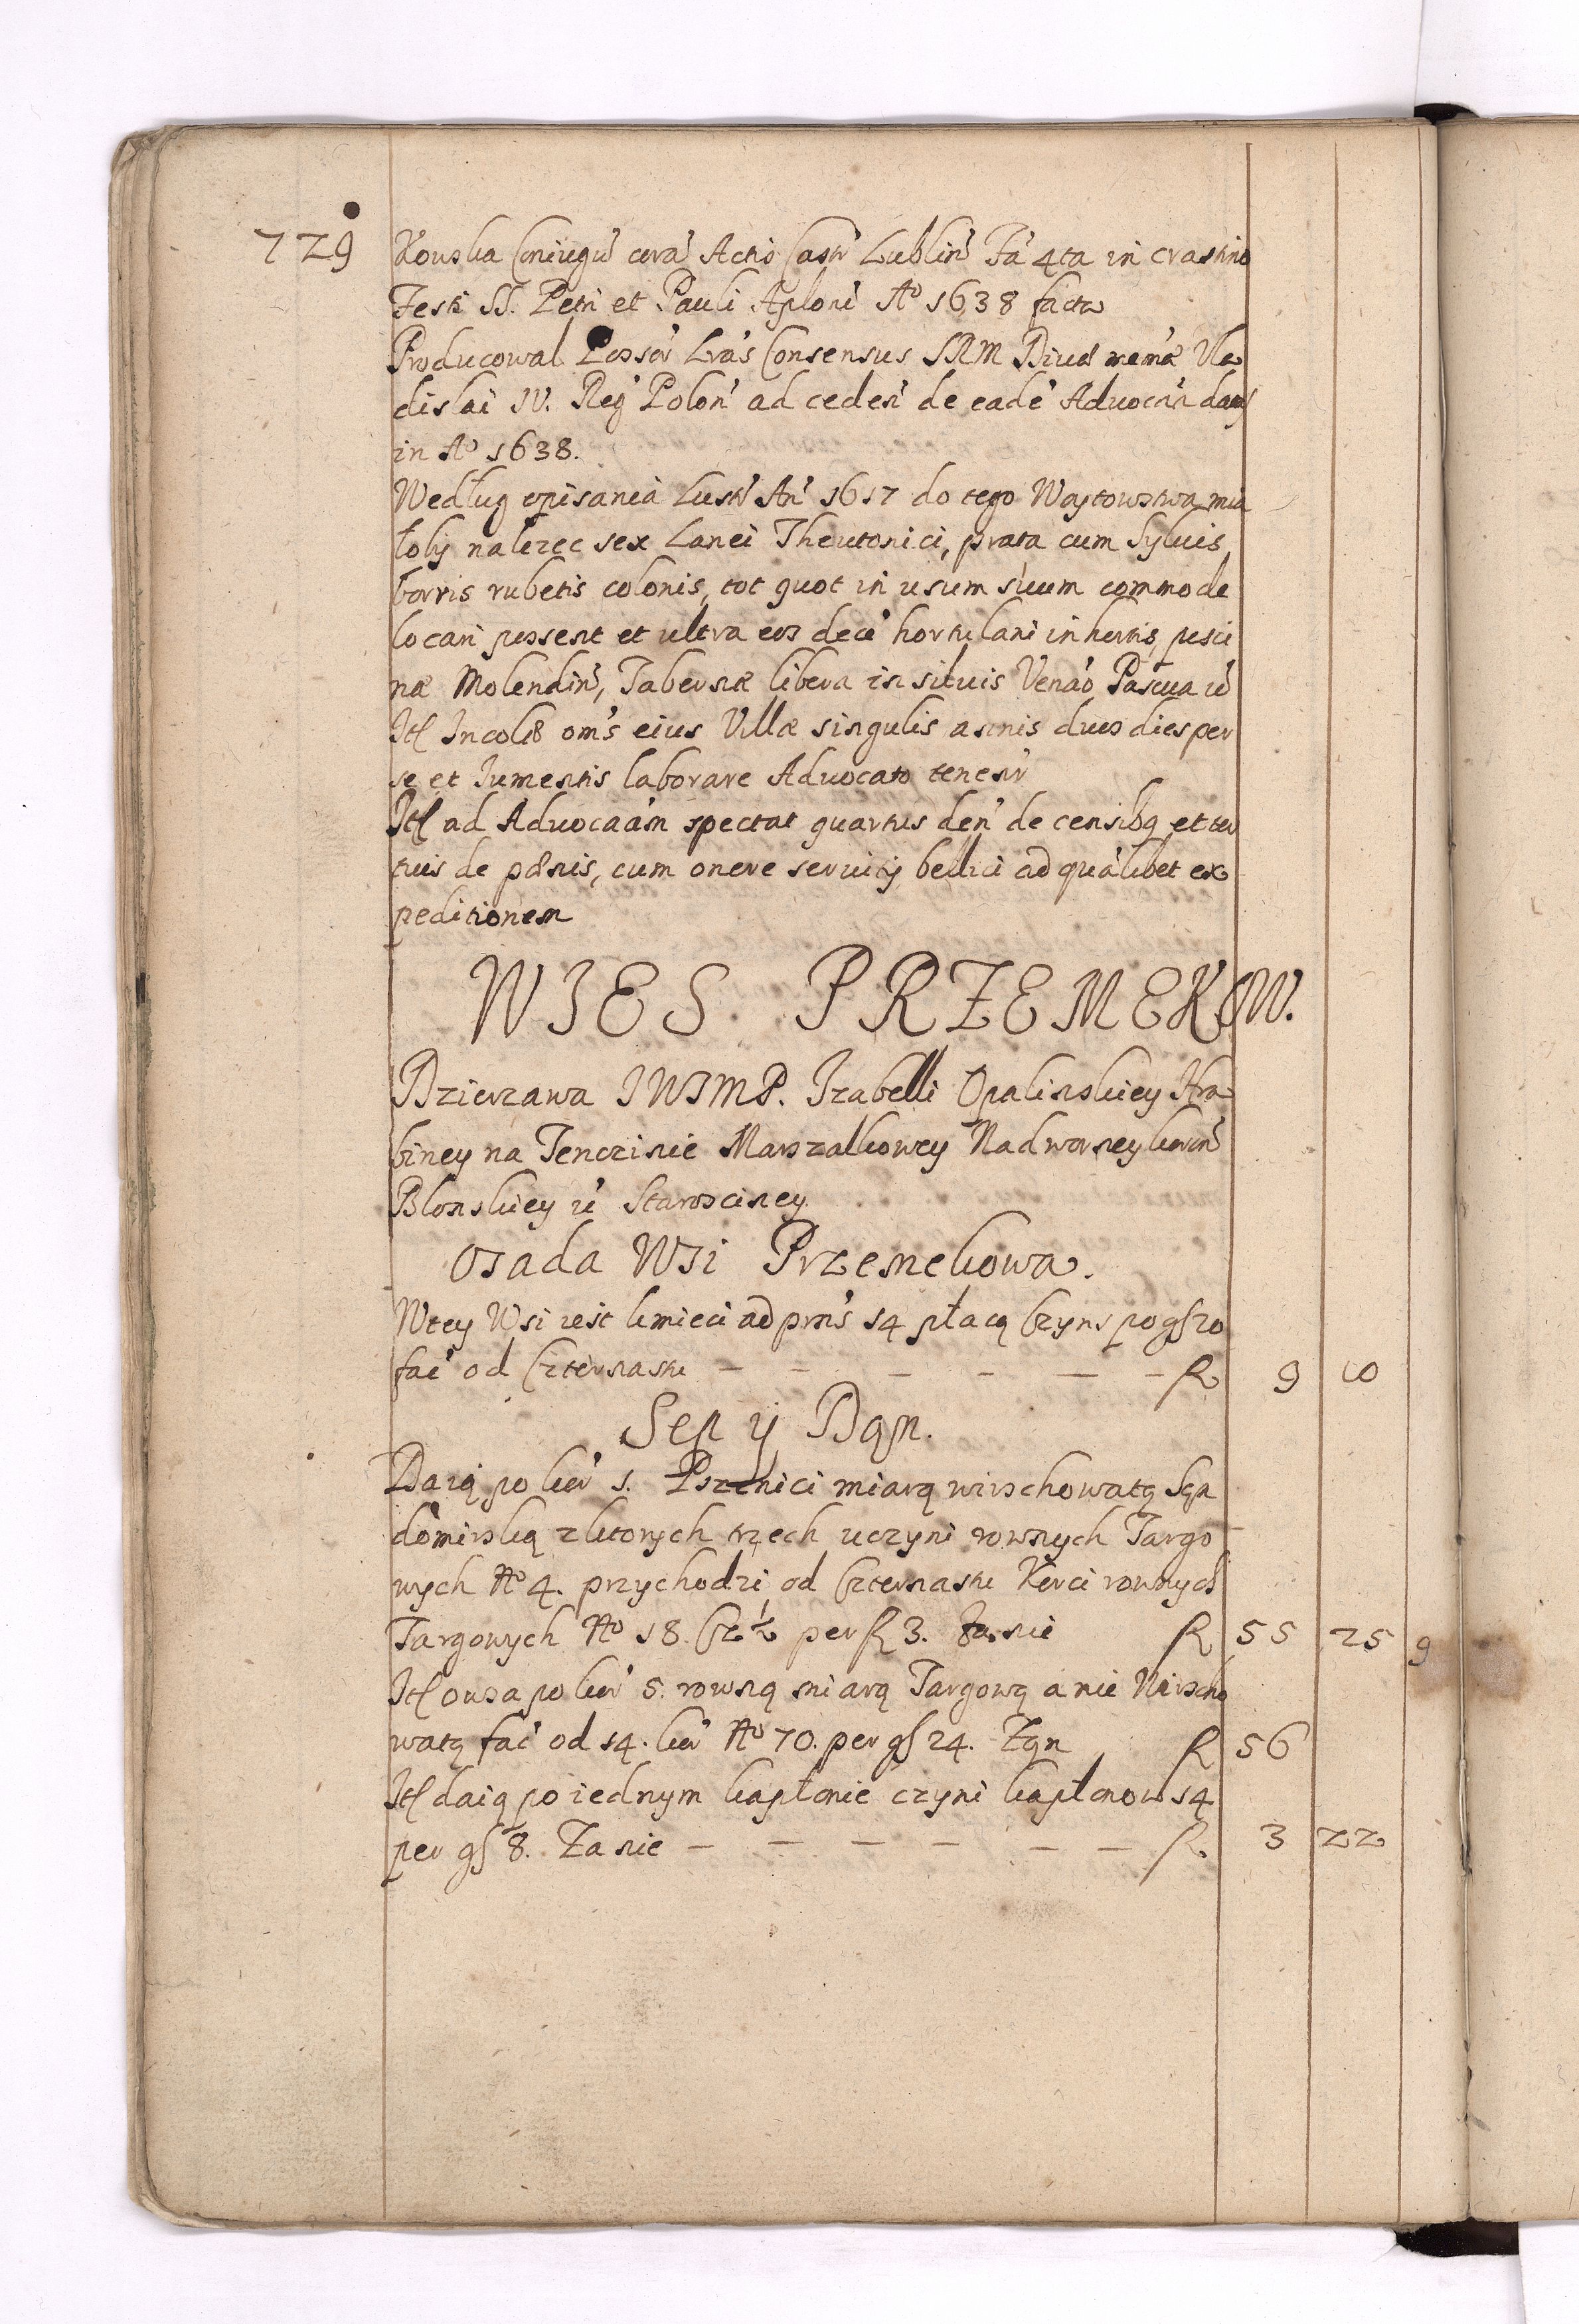 729
Kowska Coniugu' cora' Actis Castr' Lublin' Fa' 4ta in crastino
Festi SS. Petri et Pauli Aplor' Ao 1638 facta
Producowal Possor' Lra's Consensus SRM Divae mem'a Vla
dislai IV. Reg' Polon' ad ceden' de eade' Advoca'a
in Ao 1638.
Według opisania Lustr' An' 1617 do tego Waytowstwa mia
łoby nalezec sex Lanei Theutonici, prata cum Sylvis,
borris rubetis colonis, tot quot in usum suum commode
locari possent et ultra eos dece' hortulani in hortis, pisci
næ Molendin', Tabernæ libera in siluis Venao' Pascua
Itl Incolæ om's eius Villæ singulis annis duos dies per
se et Iumentis laborare Advocato tenen'r
Itl ad Advocaa'm spectat quartus den' de censibq et ter
tius de pænis, cum onere seruity bellici ad qua'libet ex
peditionem
WIES PRZEMEKOW.
Dzierzawa JWJMP. Izabelli Opalinskiey Hra
biney na Tenczinie Marszalkowey Nadworney koron'
Blonskiey Starosciney
Osada Wsi Przemekowa.
Wtey Wsi iest kmieci ad prns 14 płacą Czyns po gl 20
fac' od Czternastu — — — — — — fl 9 10
Sep y Dan.
Daią po kor' 1. Pszenici miarą wirschowatą Sęn
domirską z ktorych trzech uczyni rownych Targo
wych No 4. przychodzi od Czternastu Korci rownych
Targowych No 18. Cz 1/2 per fl 3. Zanie fl 55 25 9
Itl owsa po kor' 5. rowną miarą Targową a nie Wirscho
watą fac' od 14. kor' No 70. per gl 24. Zan fl 56
Itl daią po iednym kapłonie czyni kapłonow 14
per gl 8. Zanie — — — — — — fl. 3 22